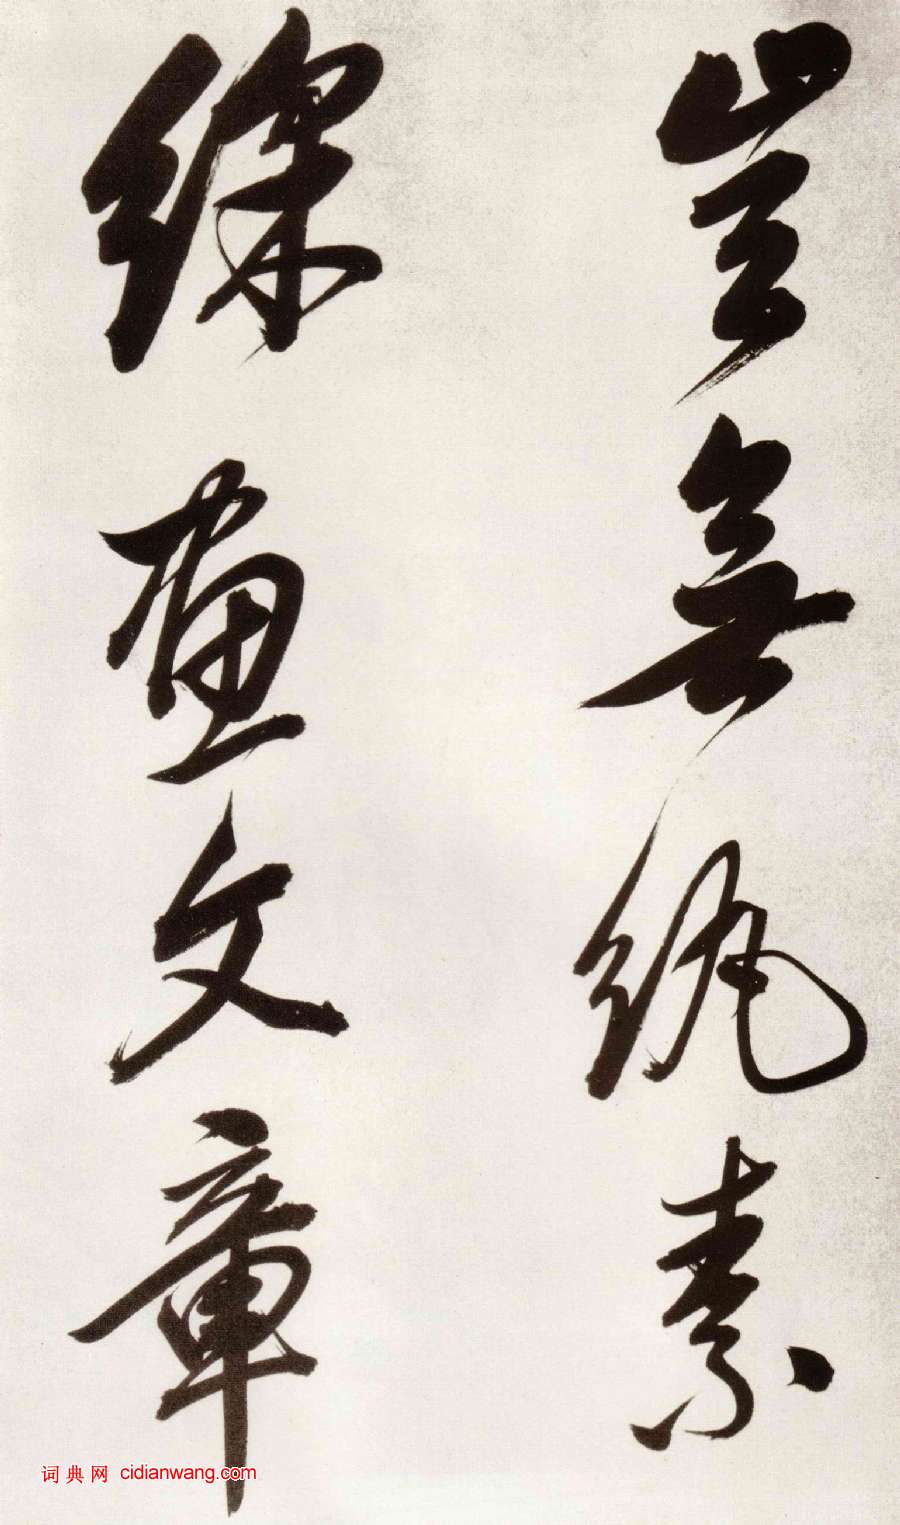 豈無紈素
綵畫文章
词典网 cidianwang.com